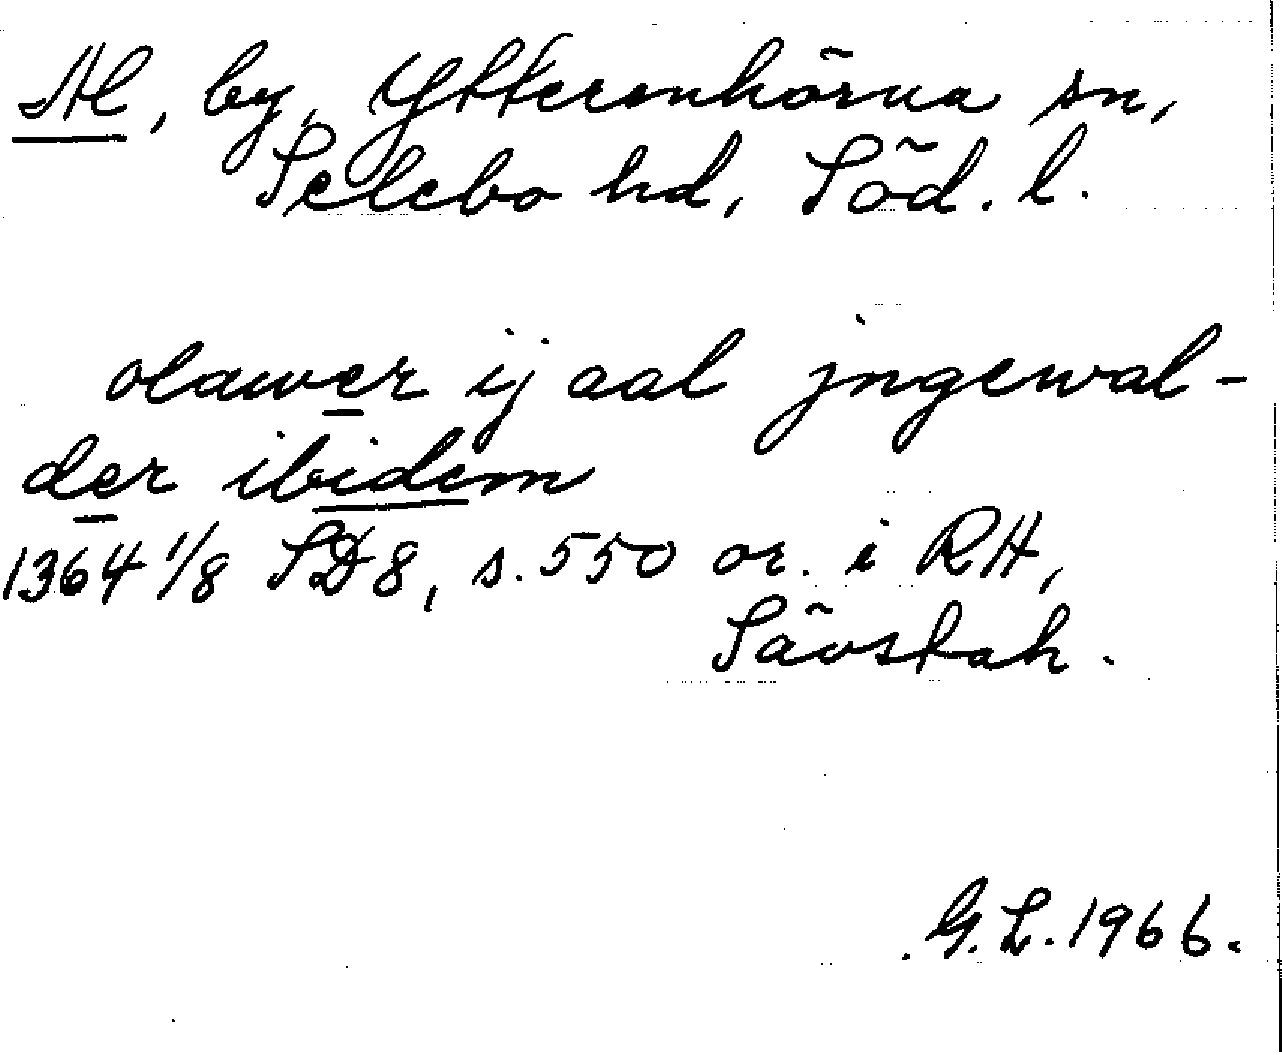 Al, by, Ytterenhörna sn,
Selebo hd, Söd. l.
olawer ij aal jngewal-
der ibidem
1364 1/8 SD 8, s. 550 or. i RA,
Sävstah.
G. L. 1966.